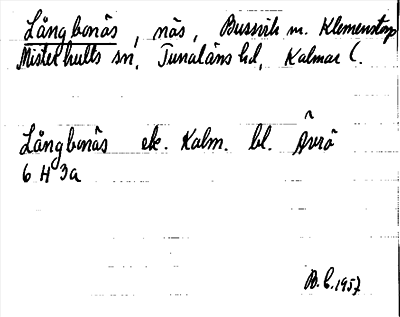 Långbonäs, näs, Bussvik m. Klemenstorp
Misterhults sn, Tunaläns hd, Kalmar l.
Långbonäs ek. Kalm. bl. Ävrö
6 H 3a
B.C. 1957